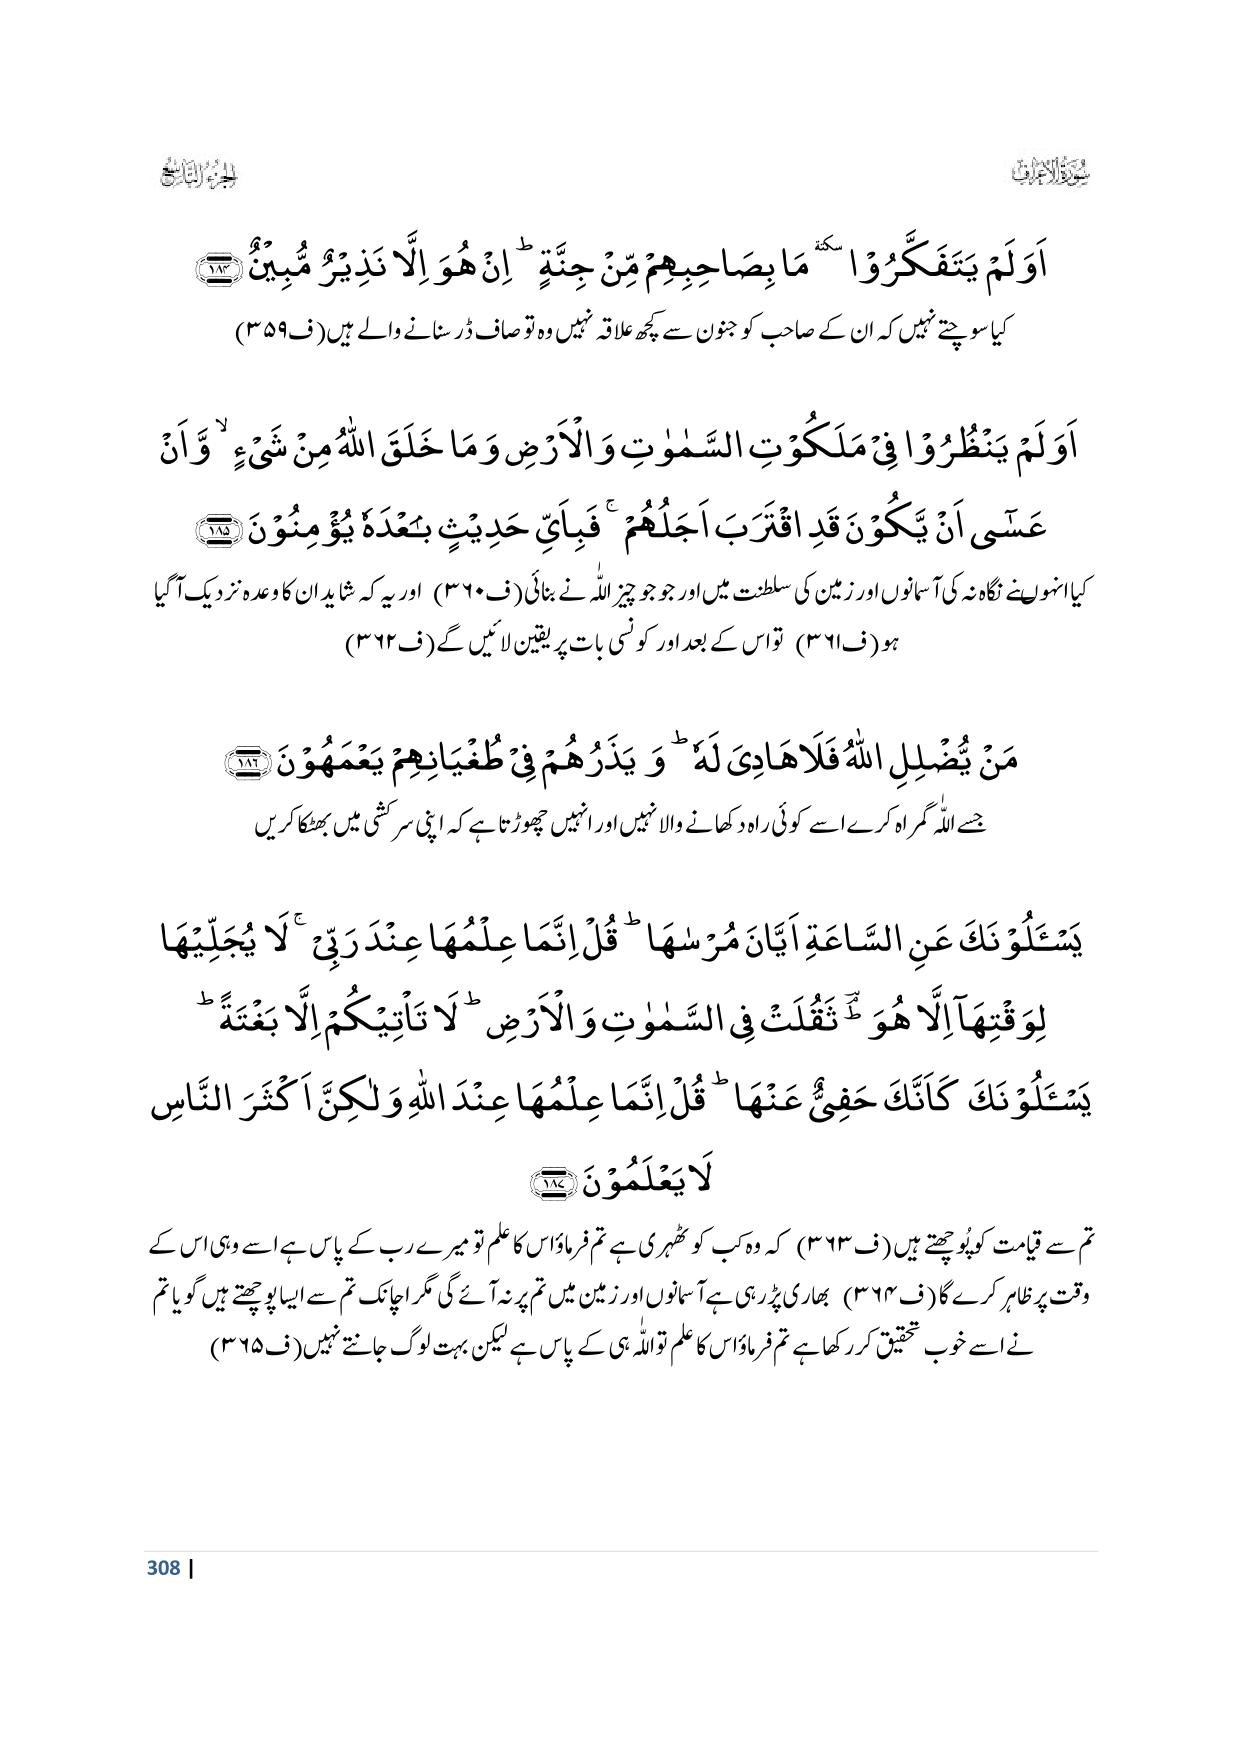 سُوْرَةُ الْاَعْرَاف
الجزء التاسع
اَوَلَمْ يَتَفَكَّرُوْا سكتة مَا بِصَاحِبِهِمْ مِّنْ جِنَّةٍ ؕ اِنْ هُوَ اِلَّا نَذِيْرٌ مُّبِيْنٌ ﴿۱۸۴﴾
کیا سوچتے نہیں کہ ان کے صاحب کو جنون سے کچھ علاقہ نہیں وہ تو صاف ڈر سنانے والے ہیں(ف۳۵۹)
اَوَلَمْ يَنْظُرُوْا فِيْ مَلَكُوْتِ السَّمٰوٰتِ وَالْاَرْضِ وَمَا خَلَقَ اللّٰهُ مِنْ شَيْءٍ ۙ وَّاَنْ
عَسٰٓى اَنْ يَّكُوْنَ قَدِ اقْتَرَبَ اَجَلُهُمْ ۚ فَبِاَيِّ حَدِيْثٍۭ بَعْدَهٗ يُؤْمِنُوْنَ ﴿۱۸۵﴾
کیا انہوں نے نگاہ نہ کی آسمانوں اور زمین کی سلطنت میں اور جو جو چیز اللّٰہ نے بنائی(ف۳۶۰) اور یہ کہ شاید ان کا وعدہ نزدیک آگیا
ہو(ف۳۶۱) تو اس کے بعد اور کونسی بات پر یقین لائیں گے(ف۳۶۲)
مَنْ يُّضْلِلِ اللّٰهُ فَلَا هَادِيَ لَهٗ ؕ وَ يَذَرُهُمْ فِيْ طُغْيَانِهِمْ يَعْمَهُوْنَ ﴿۱۸۶﴾
جسے اللّٰہ گمراہ کرے اسے کوئی راہ دکھانے والا نہیں اور انہیں چھوڑتا ہے کہ اپنی سرکشی میں بھٹکا کریں
يَسْـَٔلُوْنَكَ عَنِ السَّاعَةِ اَيَّانَ مُرْسٰىهَا ؕ قُلْ اِنَّمَا عِلْمُهَا عِنْدَ رَبِّيْ ۚ لَا يُجَلِّيْهَا
لِوَقْتِهَاۤ اِلَّا هُوَ ؕۘ ثَقُلَتْ فِي السَّمٰوٰتِ وَالْاَرْضِ ؕ لَا تَاْتِيْكُمْ اِلَّا بَغْتَةً ؕ
يَسْـَٔلُوْنَكَ كَاَنَّكَ حَفِيٌّ عَنْهَا ؕ قُلْ اِنَّمَا عِلْمُهَا عِنْدَ اللّٰهِ وَلٰكِنَّ اَكْثَرَ النَّاسِ
لَا يَعْلَمُوْنَ ﴿۱۸۷﴾
تم سے قیامت کو پُوچھتے ہیں(ف۳۶۳) کہ وہ کب کو ٹھہری ہے تم فرماؤ اس کا علم تو میرے رب کے پاس ہے اسے وہی اس کے
وقت پر ظاہر کرے گا(ف۳۶۴) بھاری پڑ رہی ہے آسمانوں اور زمین میں تم پر نہ آئے گی مگر اچانک تم سے ایسا پوچھتے ہیں گویا تم
نے اسے خوب تحقیق کر رکھا ہے تم فرماؤ اس کا علم تو اللّٰہ ہی کے پاس ہے لیکن بہت لوگ جانتے نہیں(ف۳۶۵)
308 |